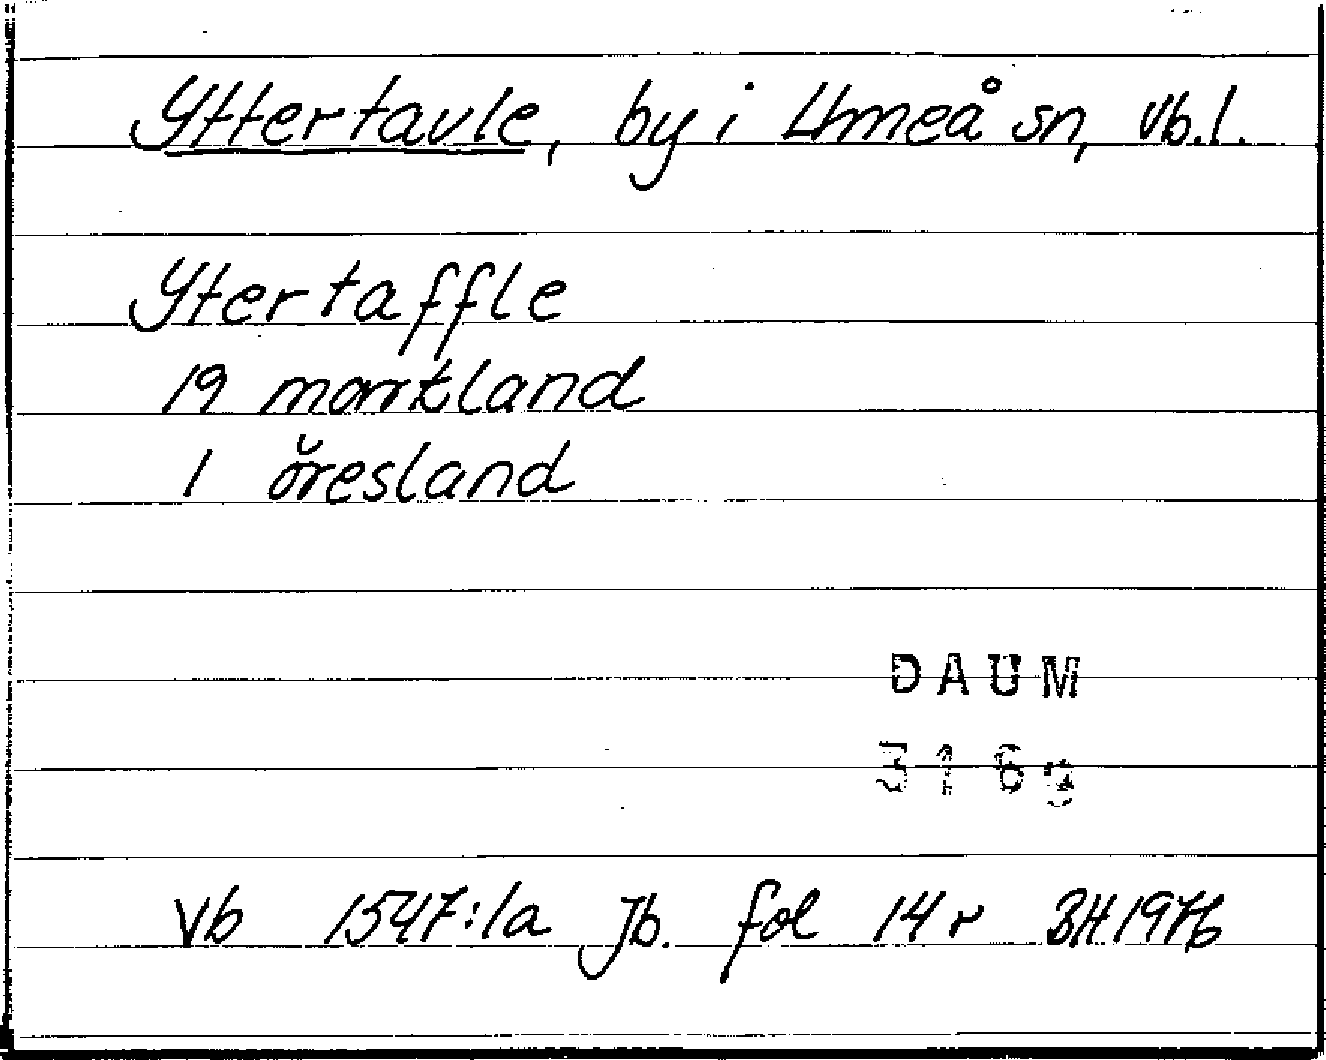 Yttertavle, by i Umeå sn, Vb.l.
Ytertaffle
19 markland
1 öresland
DAUM
3169
Vb 1547:1a Jb. fol 14 r BH 1976